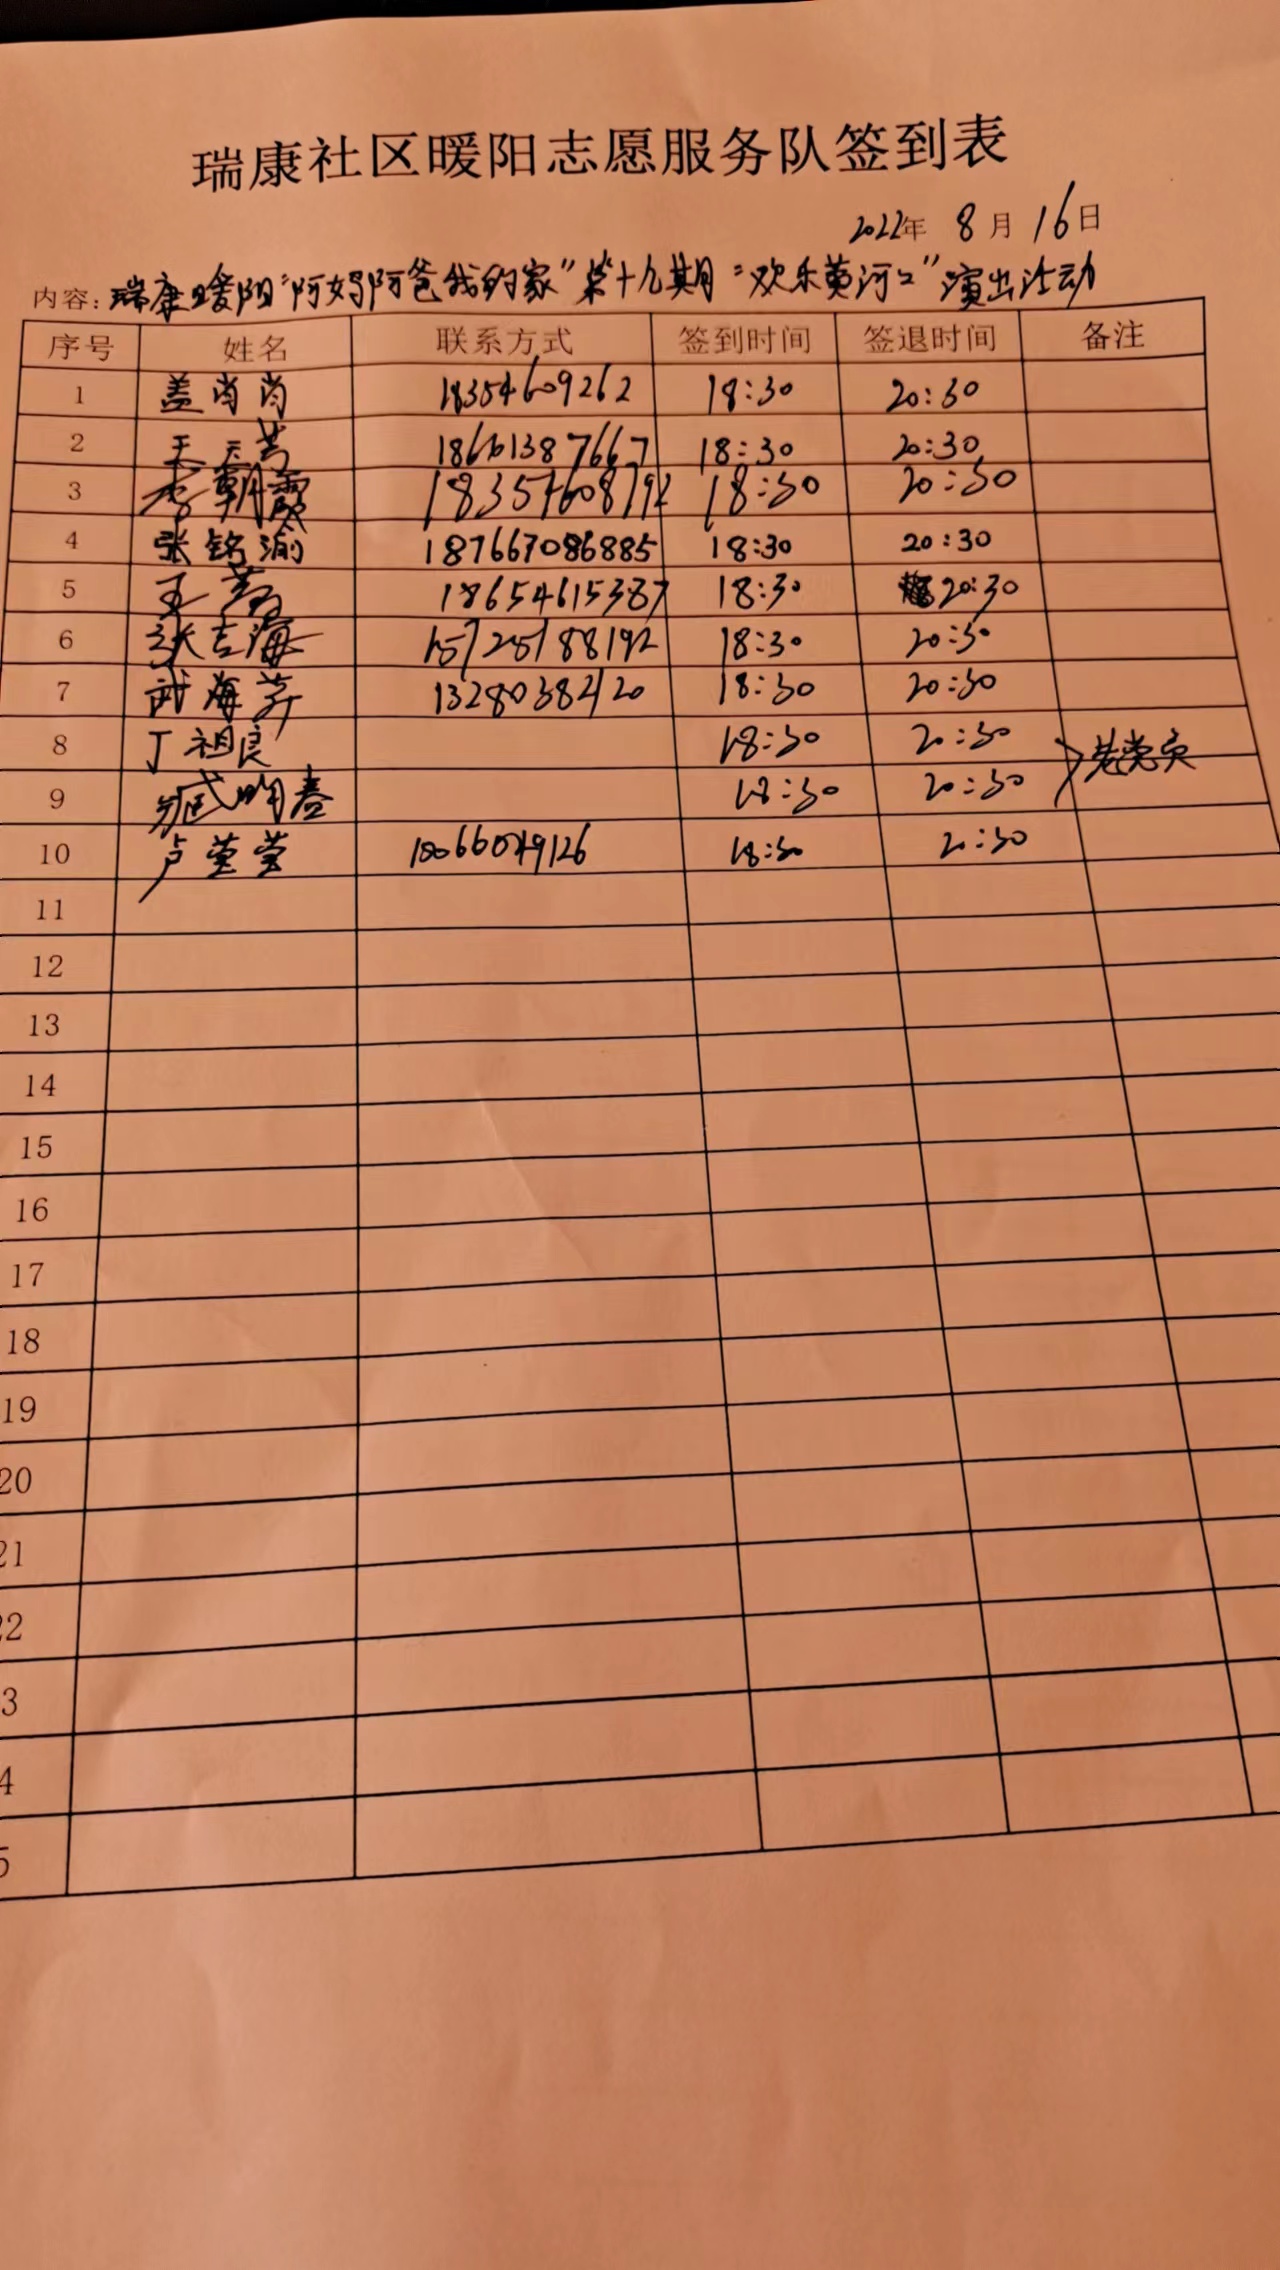 瑞康社区暖阳志愿服务队签到表
2022年 8月 16日
内容：瑞康暖阳"阿妈阿爸我的家"第十九期"欢乐黄河口"演出活动
序号 姓名 联系方式 签到时间 签退时间 备注
1 盖肖肖 18354609262 18:30 20:30
2 18661387667 18:30 20:30
3 李朝霞 18:30 20:30
4 张铭渝 187667086885 18:30 20:30
5 王 18654615387 18:30 20:30
6 张吉海 15725188192 18:30 20:30
7 武海芹 13280382120 18:30 20:30
8 丁祖良 18:30 20:30 老党员
9 臧昀春 18:30 20:30
10 卢莹莹 18:30 20:30
11
12
13
14
15
16
17
18
19
20
21
22
3
4
5